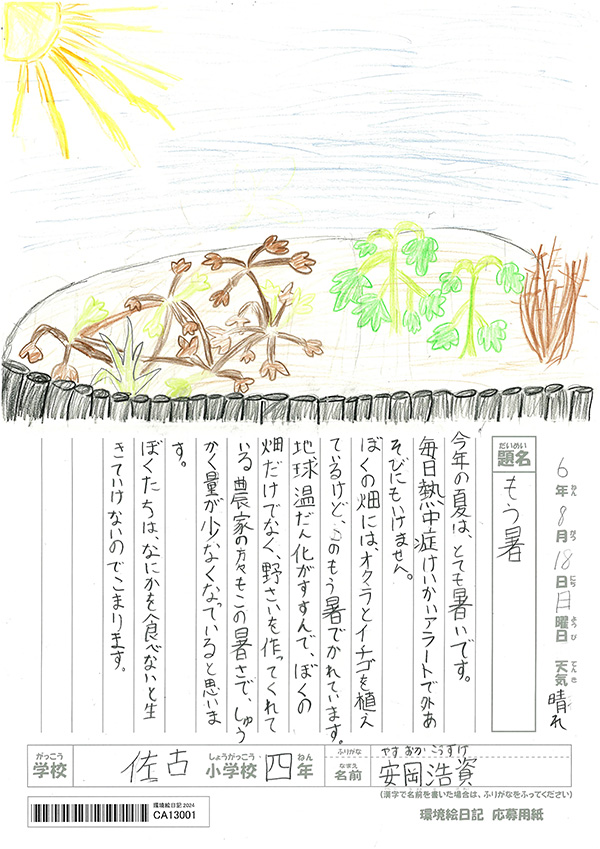 6年ねん8月がつ18日にち日曜日ようび 天気てんき 晴れ
題名だいめい もう暑
今年の夏は、とても暑いです。
毎日熱中症けいかいアラートで外あ
そびにもいけません。
ぼくの畑には、オクラとイチゴを植え
ているけど、このもう暑でかれています。
地球温だん化がすすんで、ぼくの
畑だけでなく、野さいを作ってくれて
いる農家の方々もこの暑さで、しゅう
かく量が少なくなっていると思いま
す。
ぼくたちは、なにかを食べないと生
きていけないのでこまります。
がっこう しょうがっこう ねん ふりがな やすおか こうすけ
学校 佐古 小学校 四年 なまえ 名前 安岡浩資
(漢字で名前を書いた場合は、ふりがなをふってください)
環境絵日記2024
CA13001
環境絵日記 応募用紙